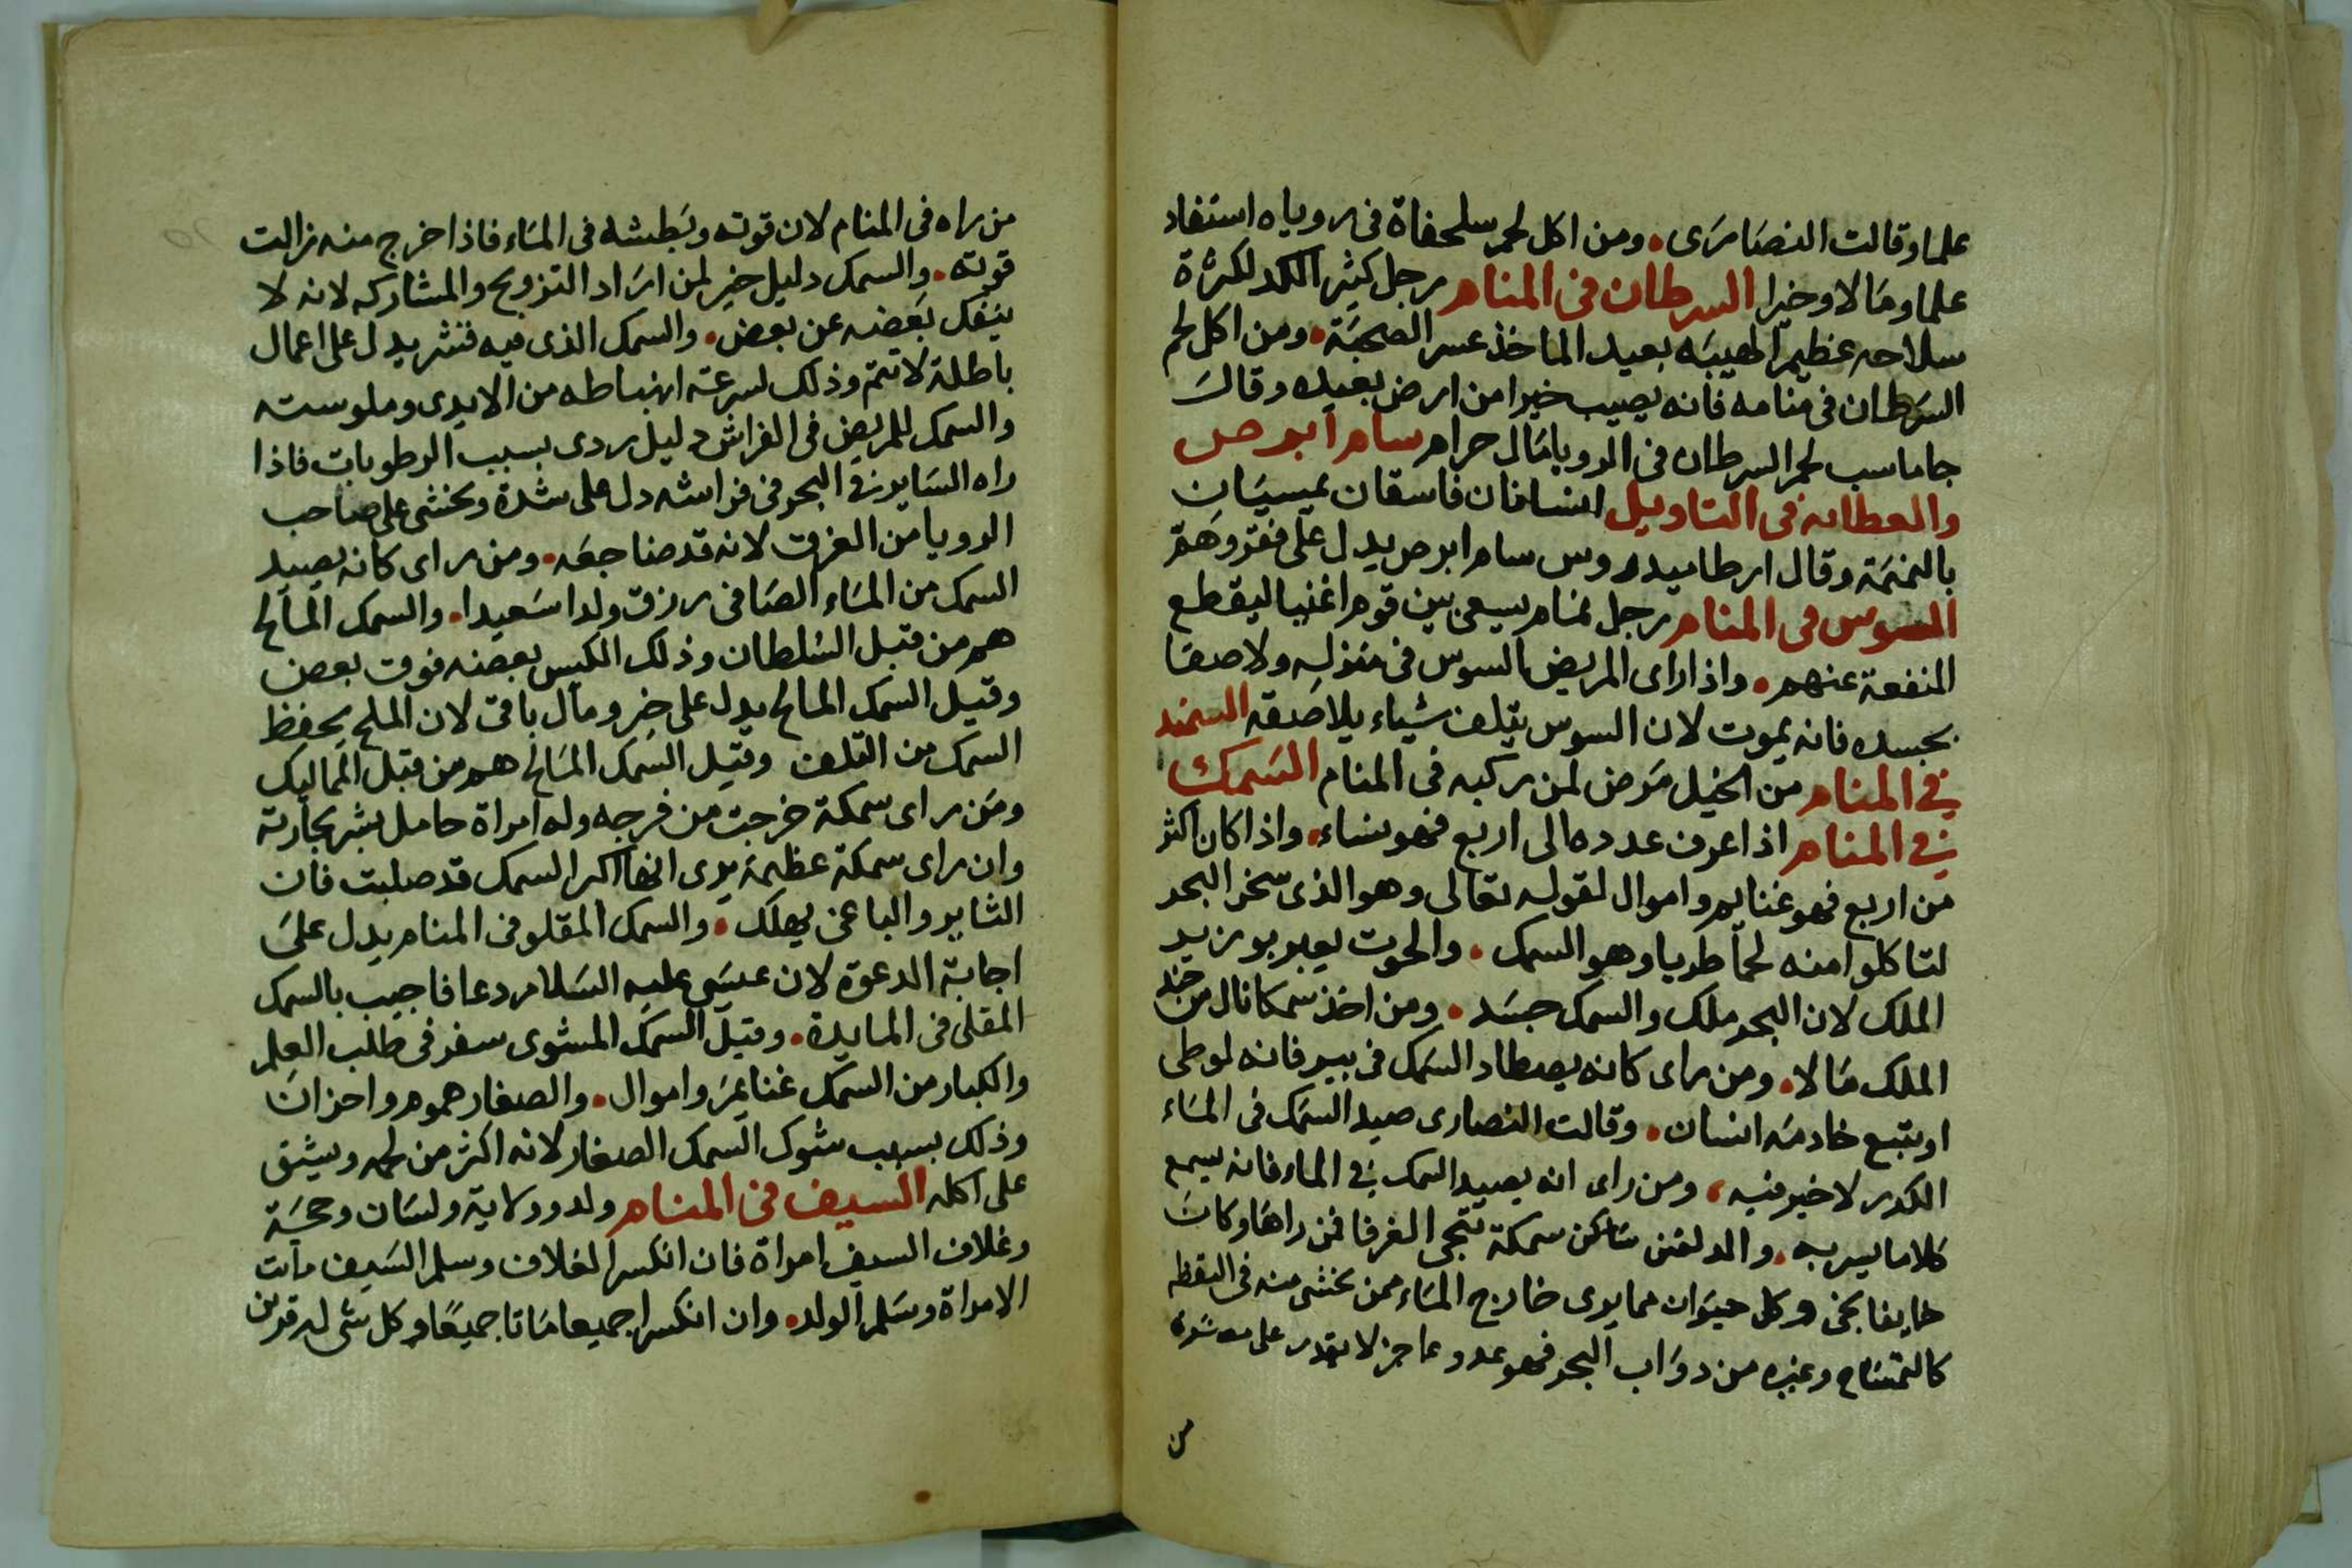 علما وقالت النصارى ومن اكل لحم سلحفاة فى روياه استفاد
علما ومالا وخيرا السرطان فى المنام رجل كثير الكد لكثرة
سلاحه عظيم الهيبه بعيد الماخذ عسر الصحبة ومن اكل لحم
السرطان فى منامه فانه يصيب خيرا من ارض بعيده وقالت
جاماسب لحم السرطان فى الرويا مال حرام سام ابرص
والعطايه فى التاويل انسانان فاسقان يمسيان
بالنميمة وقال ارطاميدروس سام ابرص يدل على فقر وهم
السوس فى المنام رجل نمام يسعى بين قوم اغنيا ليقطع
المنفعة عنهم واذا راى المريض السوس فى منزله ولاصقا
بجسده فانه يموت لان السوس يتلف شياء يلاصقه السمند
في المنام من الخيل مرض لمن ركبه فى المنام السمك
في المنام اذا عرف عدده الى اربع فهو نساء واذا كان اكثر
من اربع فهو غنايم واموال لقوله تعالى وهو الذى سخر البحر
لتاكلوا منه لحما طريا وهو السمك والحوت يعبر بوزير
الملك لان البحر ملك والسمك جسد ومن اخذ سمكا نال من جند
الملك مالا ومن راى كانه يصطاد السمك فى بير فانه لوطى
او يتبع خادمه انسان وقالت النصارى صيد السمك فى الماء
الكدر لاخير فيه ومن راى انه يصيد السمك في الماء فانه يسمع
كلاما يسر به والدلفين سمكة تنجى الغرقا فمن راها وكان
خايفا نجى وكل حيوان مما يرى خارج الماء ممن نخشى منه فى اليقظه
كالتمساح وغيره من دواب البحر فهو عدو عاجز لا يقدر على
من
من راه فى المنام لان قوته وبطشه فى الماء فاذا خرج منه زالت
قوته والسمك دليل خير لمن اراد التزويج والمشاركه لانه لا
ينفك بعضه عن بعض والسمك الذى فيه قشر يدل على اعمال
باطلة لا تتم وذلك لسرعة انبساطه من الايدى وملوسته
والسمك للمريض فى الفراش دليل ردى بسبب الرطوبات فاذا
راه الساير فى البحر فى فراشه دل على شدة ونخشى على صاحب
الرويا من الغرق لانه قد ضاجعه ومن راى كانه يصيد
السمك من الماء الصافى رزق ولدا سعيدا والسمك المالح
هم من قبل السلطان وذلك الكبس بعضه فوق بعض
وقيل السمك المالح يدل على خير ومال باقى لان الملح يحفظ
السمك من التلف وقيل السمك المالح هم من قبل المماليك
ومن راى سمكة خرجت من فرجه وله امراة حامل بشر بجارية
وان راى سمكة عظيمة يرى انها اكبر السمك قد صلبت فان
الثاير والباغى يهلك والسمك المقلو فى المنام يدل على
اجابة الدعوة لان عيسى عليه السلام دعا فاجيب بالسمك
المقلى فى المايدة وقيل السمك المشوى سفر فى طلب العلم
والكبار من السمك غنايم واموال والصغار هموم واحزان
وذلك بسبب شوك السمك الصغار لانه اكثر من لحمه ويشق
على اكله السيف فى المنام ولد وولاية ولسان وحجة
وغلاف السيف امراة فان انكسر الغلاف وسلم السيف ماتت
الامراة وسلم الولد وان انكسرا جميعا ماتا جميعا وكل شى له قرين